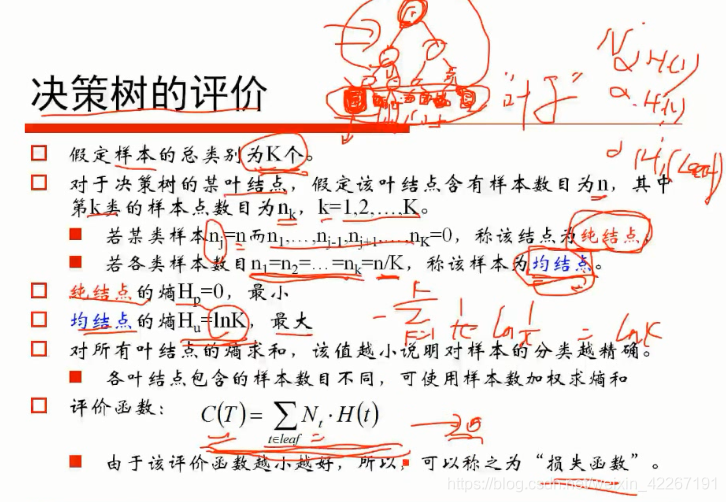 决策树的评价
"叶子"
假定样本的总类别为K个。
对于决策树的某叶结点，假定该叶结点含有样本数目为n，其中
第k类的样本点数目为nk，k=1,2,...,K。
若某类样本nj=n而n1,...,nj-1,nj+1,...,nK=0，称该结点为纯结点
若各类样本数目n1=n2=...=nk=n/K，称该样本为均结点。
纯结点的熵Hp=0，最小
均结点的熵Hu=lnK，最大
对所有叶结点的熵求和，该值越小说明对样本的分类越精确。
各叶结点包含的样本数目不同，可使用样本数加权求熵和
评价函数： C(T) = ∑ Nt · H(t)
t∈leaf
由于该评价函数越小越好，所以，可以称之为“损失函数”。
https://blog.csdn.net/weixin_42267191